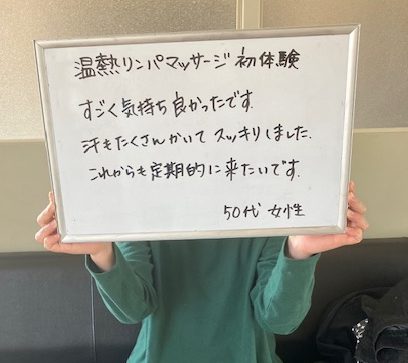 温熱リンパマッサージ 初体験
すごく気持ち良かったです.
汗もたくさんかいて スッキリしました.
これからも定期的に来たいです.
50代 女性